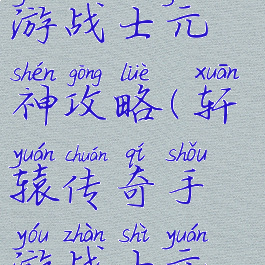 游战士元
shén gōng lüè xuān
神攻略(轩
yuán chuán qí shǒu
辕传奇手
yóu zhàn shì yuán
游战士元